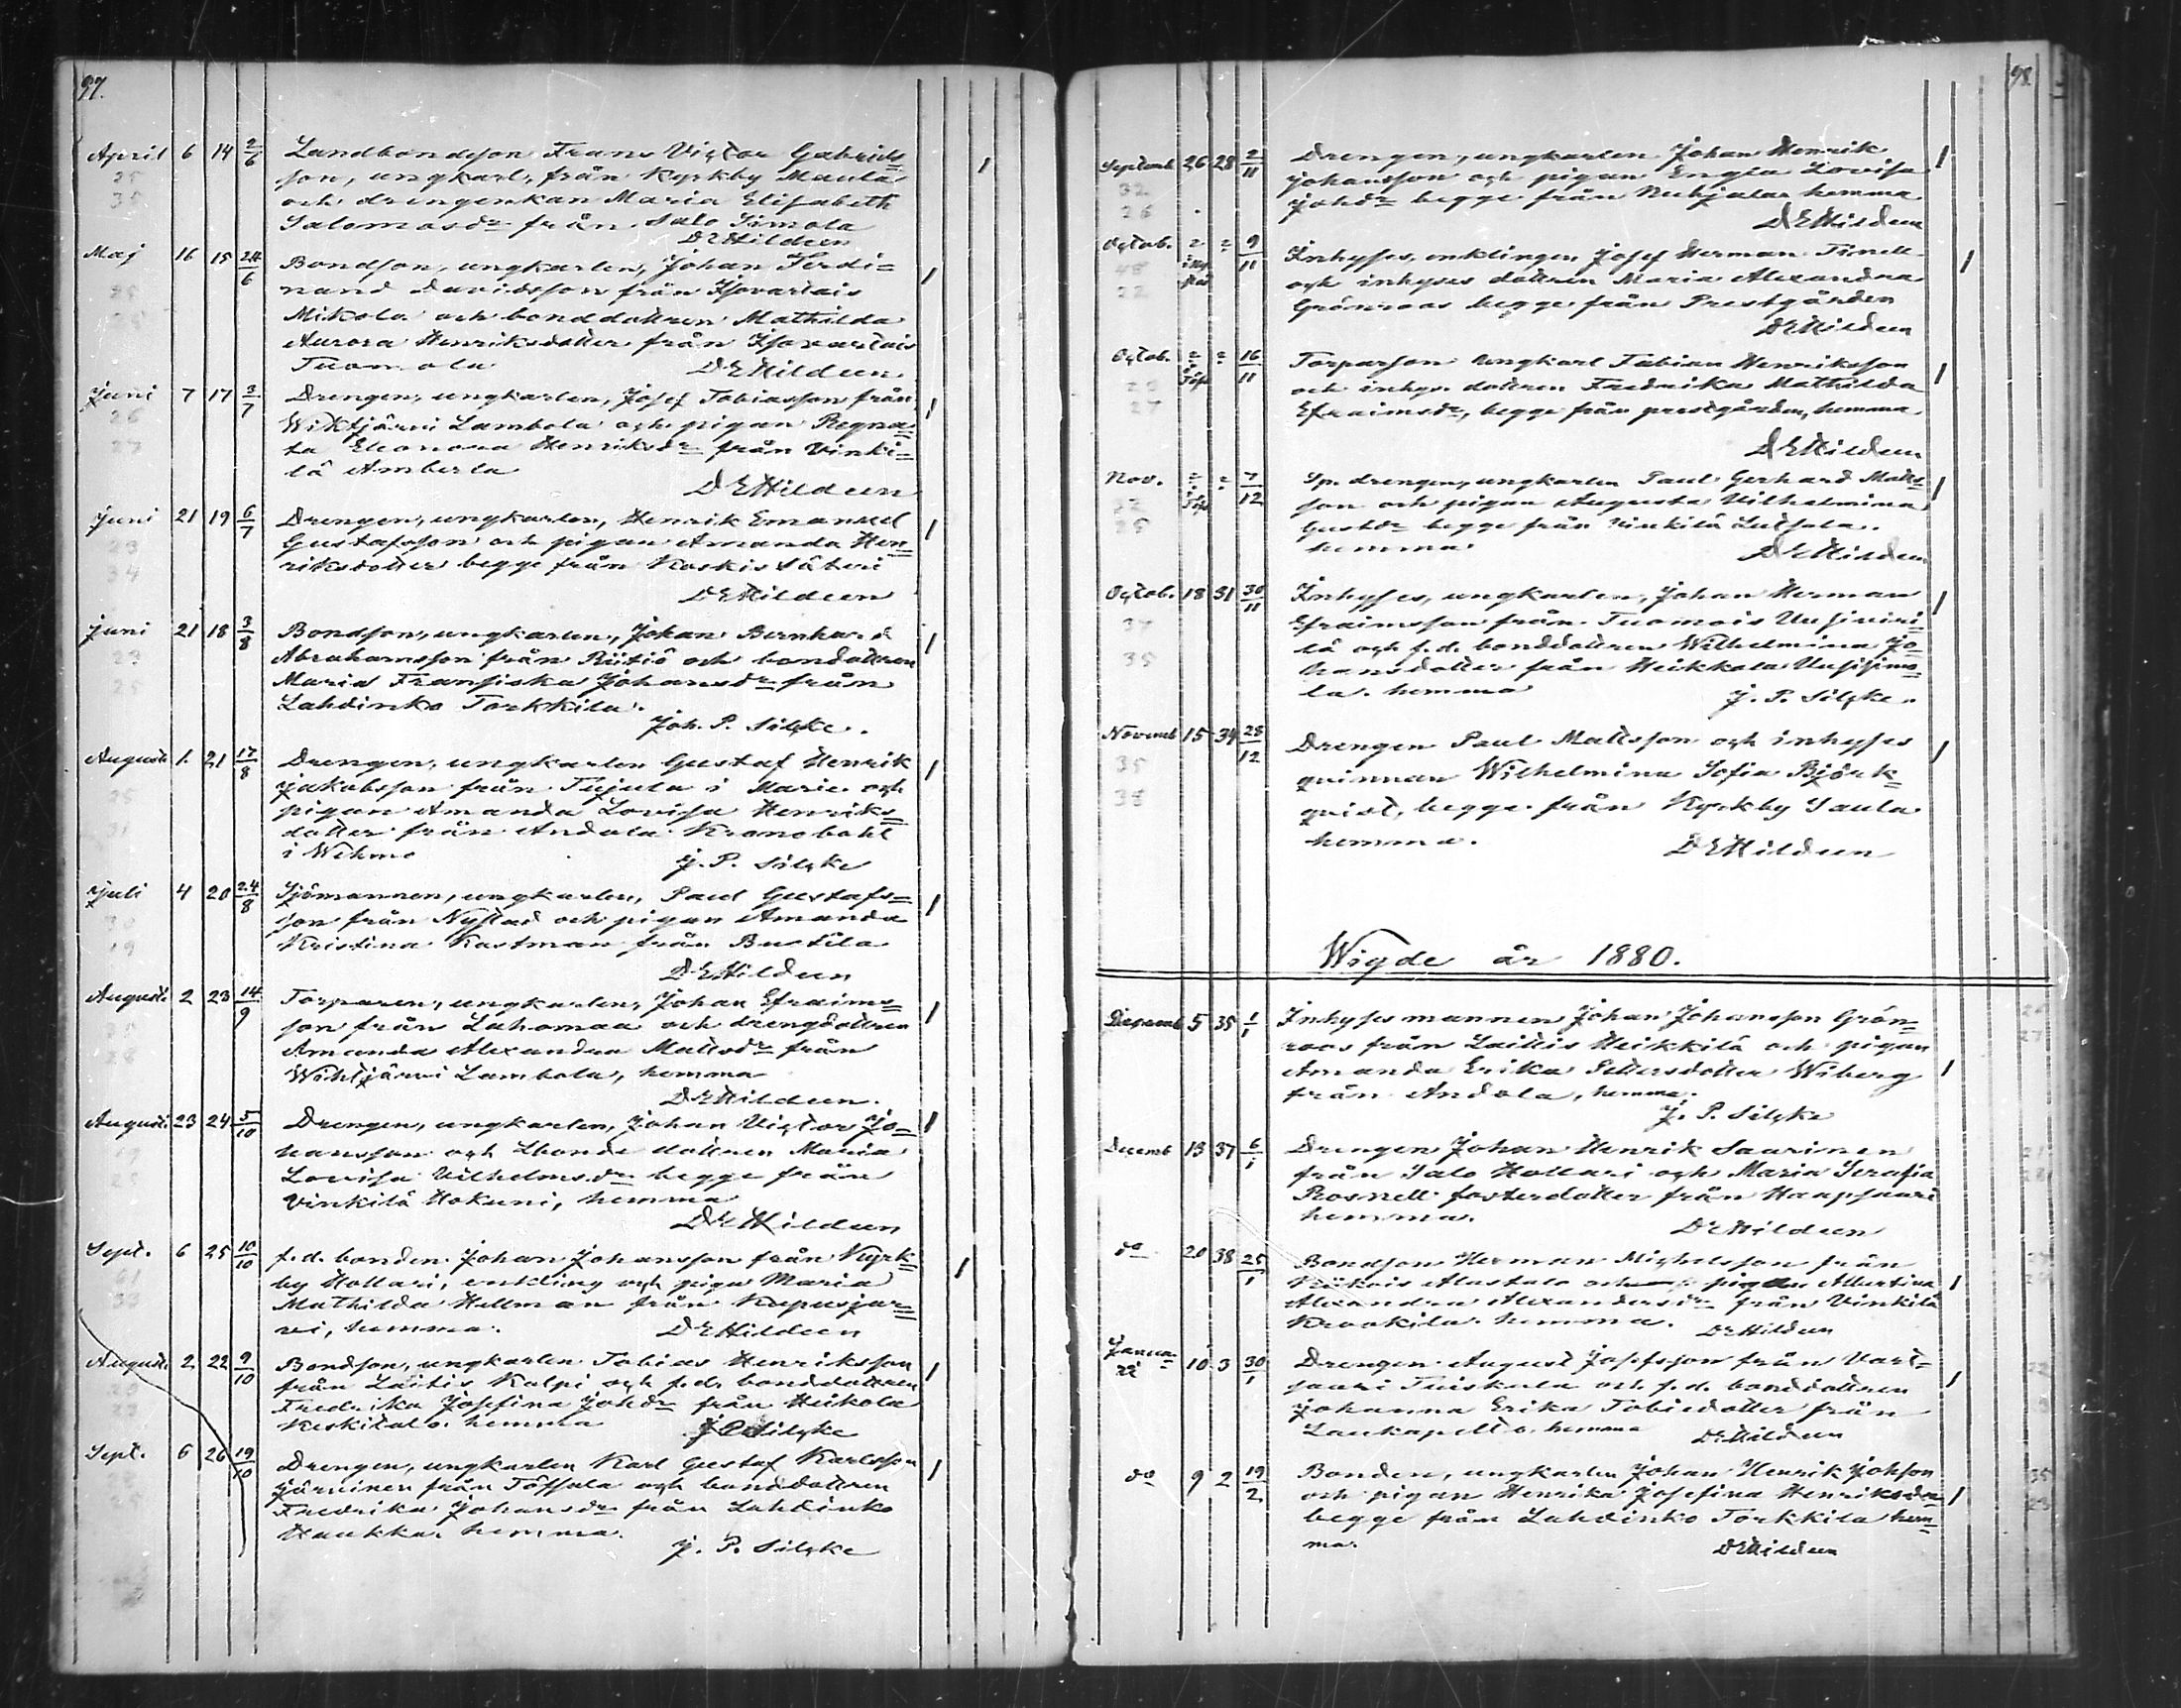 97.
April 6 14 2/6 Landbondson Frans Victor Gabriels=
25 son, ungkarl, från Kyrkby Maula
35 och drengenkan Maria Elisabeth
Salomosdr från Salo Simola
DEHildeen
Maj 16 15 24/6 Bondson, ungkarlen, Johan Ferdi=
25 nand Davidsson från
Mikola och bonddottren Mathilda
Aurora Henriksdotter från
Tuomola DEHildeen
Juni 7 17 3/7 Drengen, ungkarlen, Josef Tobiasson från
26 Wihtjärvi Lambola och pigan Regna=
27 ta Eleonora Henriksdr från Vinki=
lä Amberla
DEHildeen
Juni 21 19 6/7 Drengen, ungkarlen, Henrik Emanuel
23 Gustafsson och pigan Amanda Hen=
34 riksdotter begge från Koskis Säteri
DEHildeen
Juni 21 18 3/8 Bondson, ungkarlen, Johan Bernhard
23 Abrahamsson från Riitiö och bonddottren
25 Maria Fransiska Johansdr från
Lahdinko Torkkila.
Joh. P. Silcke.
Augusti 1. 21 17/8 Drengen, ungkarlen Gustaf Henrik
25 Jakobsson från Tujula i Marie och
31 pigan Amanda Lovisa Henriks=
dotter från Andola Kronobohl
i Wehmo
J. P. Silcke
Juli 4 20 24/8 Sjömannen, ungkarlen, Paul Gustafs=
30 son från Nystad och pigan Amanda
19 Kristina Kastman från
DEHildeen
Augusti 2 23 14/9 Torparen, ungkarlen, Johan Efraims=
son från Lahomaa och drengdottren
28 Amanda Alexandra Mattsdr från
Wihtjärvi Lambola, hemma
DEHildeen.
Augusti 23 24 5/10 Drengen, ungkarlen, Johan Victor Jo=
hansson och Lbonde dottren Maria
Lovisa Vilhelmsdr begge från
Vinkilä Hokuni, hemma
DEHildeen
Sept. 6 25 10/10 f.d. bonden Johan Johansson från Kyrk=
61 by Hollari, enkling och piga Maria
33 Mathilda Hellman från Kepusjär=
vi, hemma. DEHildeen
Augusti 2 22 9/10 Bondson, ungkarlen Tobias Henriksson
från Laitis Kulpi och f.d. bonddottren
Fredrika Josefina Johdr från Heikola
Keskitalo. hemma J P Silcke
Sept. 6 26 19/10 Drengen, ungkarlen Karl Gustaf Karlsson
Järvinen från Tössala och bonddottren
Fredrika Johansdr från Lahdinko
Haukka. hemma.
J. P. Silcke
98.
Septemb 26 28 2/11 Drengen, ungkarlen Johan Henrik
32 Johansson och pigan Engla Lovisa
26 Johdr begge från Nuhjala hemma
DEHildeen
Octob. 9/11 Inhyses, enklingen Josef Herman Tinell
48 och inhyses dottren Maria Alexandra
32 Grönroos begge från Prestgården
DEHildeen
Octob. 16/11 Torparson ungkarl Fabian Henriksson
och inhys. dottren Fredrika Mathilda
27 Efraimsdr, begge från prestgården, hemma
DEHildeen
Nov. 7/12 Sp. drengen, ungkarlen Paul Gerhard Matts=
son och pigan Augusta Vilhelmina
25 Gustdr begge från Vinkilä
hemma. DEHildeen
Octob. 18 31 30/11 Inhyses, ungkarlen, Johan Herman
37 Efraimsson från Tuomois Uusiviri=
35 lä och f.d. bonddottren Wilhelmina Jo=
hansdotter från Heikkola Uusisimo=
la. hemma J. P. Silcke.
Novemb 15 34 28/12 Drengen Paul Mattsson och inhyses
35 qvinnan Wilhelmina Sofia Björk=
38 qvist, begge från Kyrkby Saula
hemma. DEHildeen
Wigde år 1880.
Decemb 5 35 1/1 Inhyses mannen Johan Johansson Grön=
roos från Laitis Heikkilä och pigan 27
Amanda Erika Pettersdotter Wiberg
från Andola, hemma.
J. P. Silcke
Decemb 13 37 6/1 Drengen Johan Henrik Saarinen
från Salo Hollari och Maria Serafia
Rosnell fosterdotter från Haapsaari
hemma. DEHildeen
do 20 38 25/1 Bondson Herman Michelsson från
Alastalo och pigan Albertina
Alexandra Alexandersdr från Vinkilä
Krookila. hemma. DEHildeen
Janua=
ri 10 3 30/1 Drengen August Josefsson från Vart=
saari Tuiskula och f.d. bonddottren
Johanna Erika Tobiedotter från
Laukapelto. hemma DEHildeen
do 9 2 19/2 Bonden, ungkarlen Johan Henrik Johsson 35
och pigan Henrika Josefina Henriksdr 23
begge från Lahdinko Torkkila hem=
ma. DEHildeen